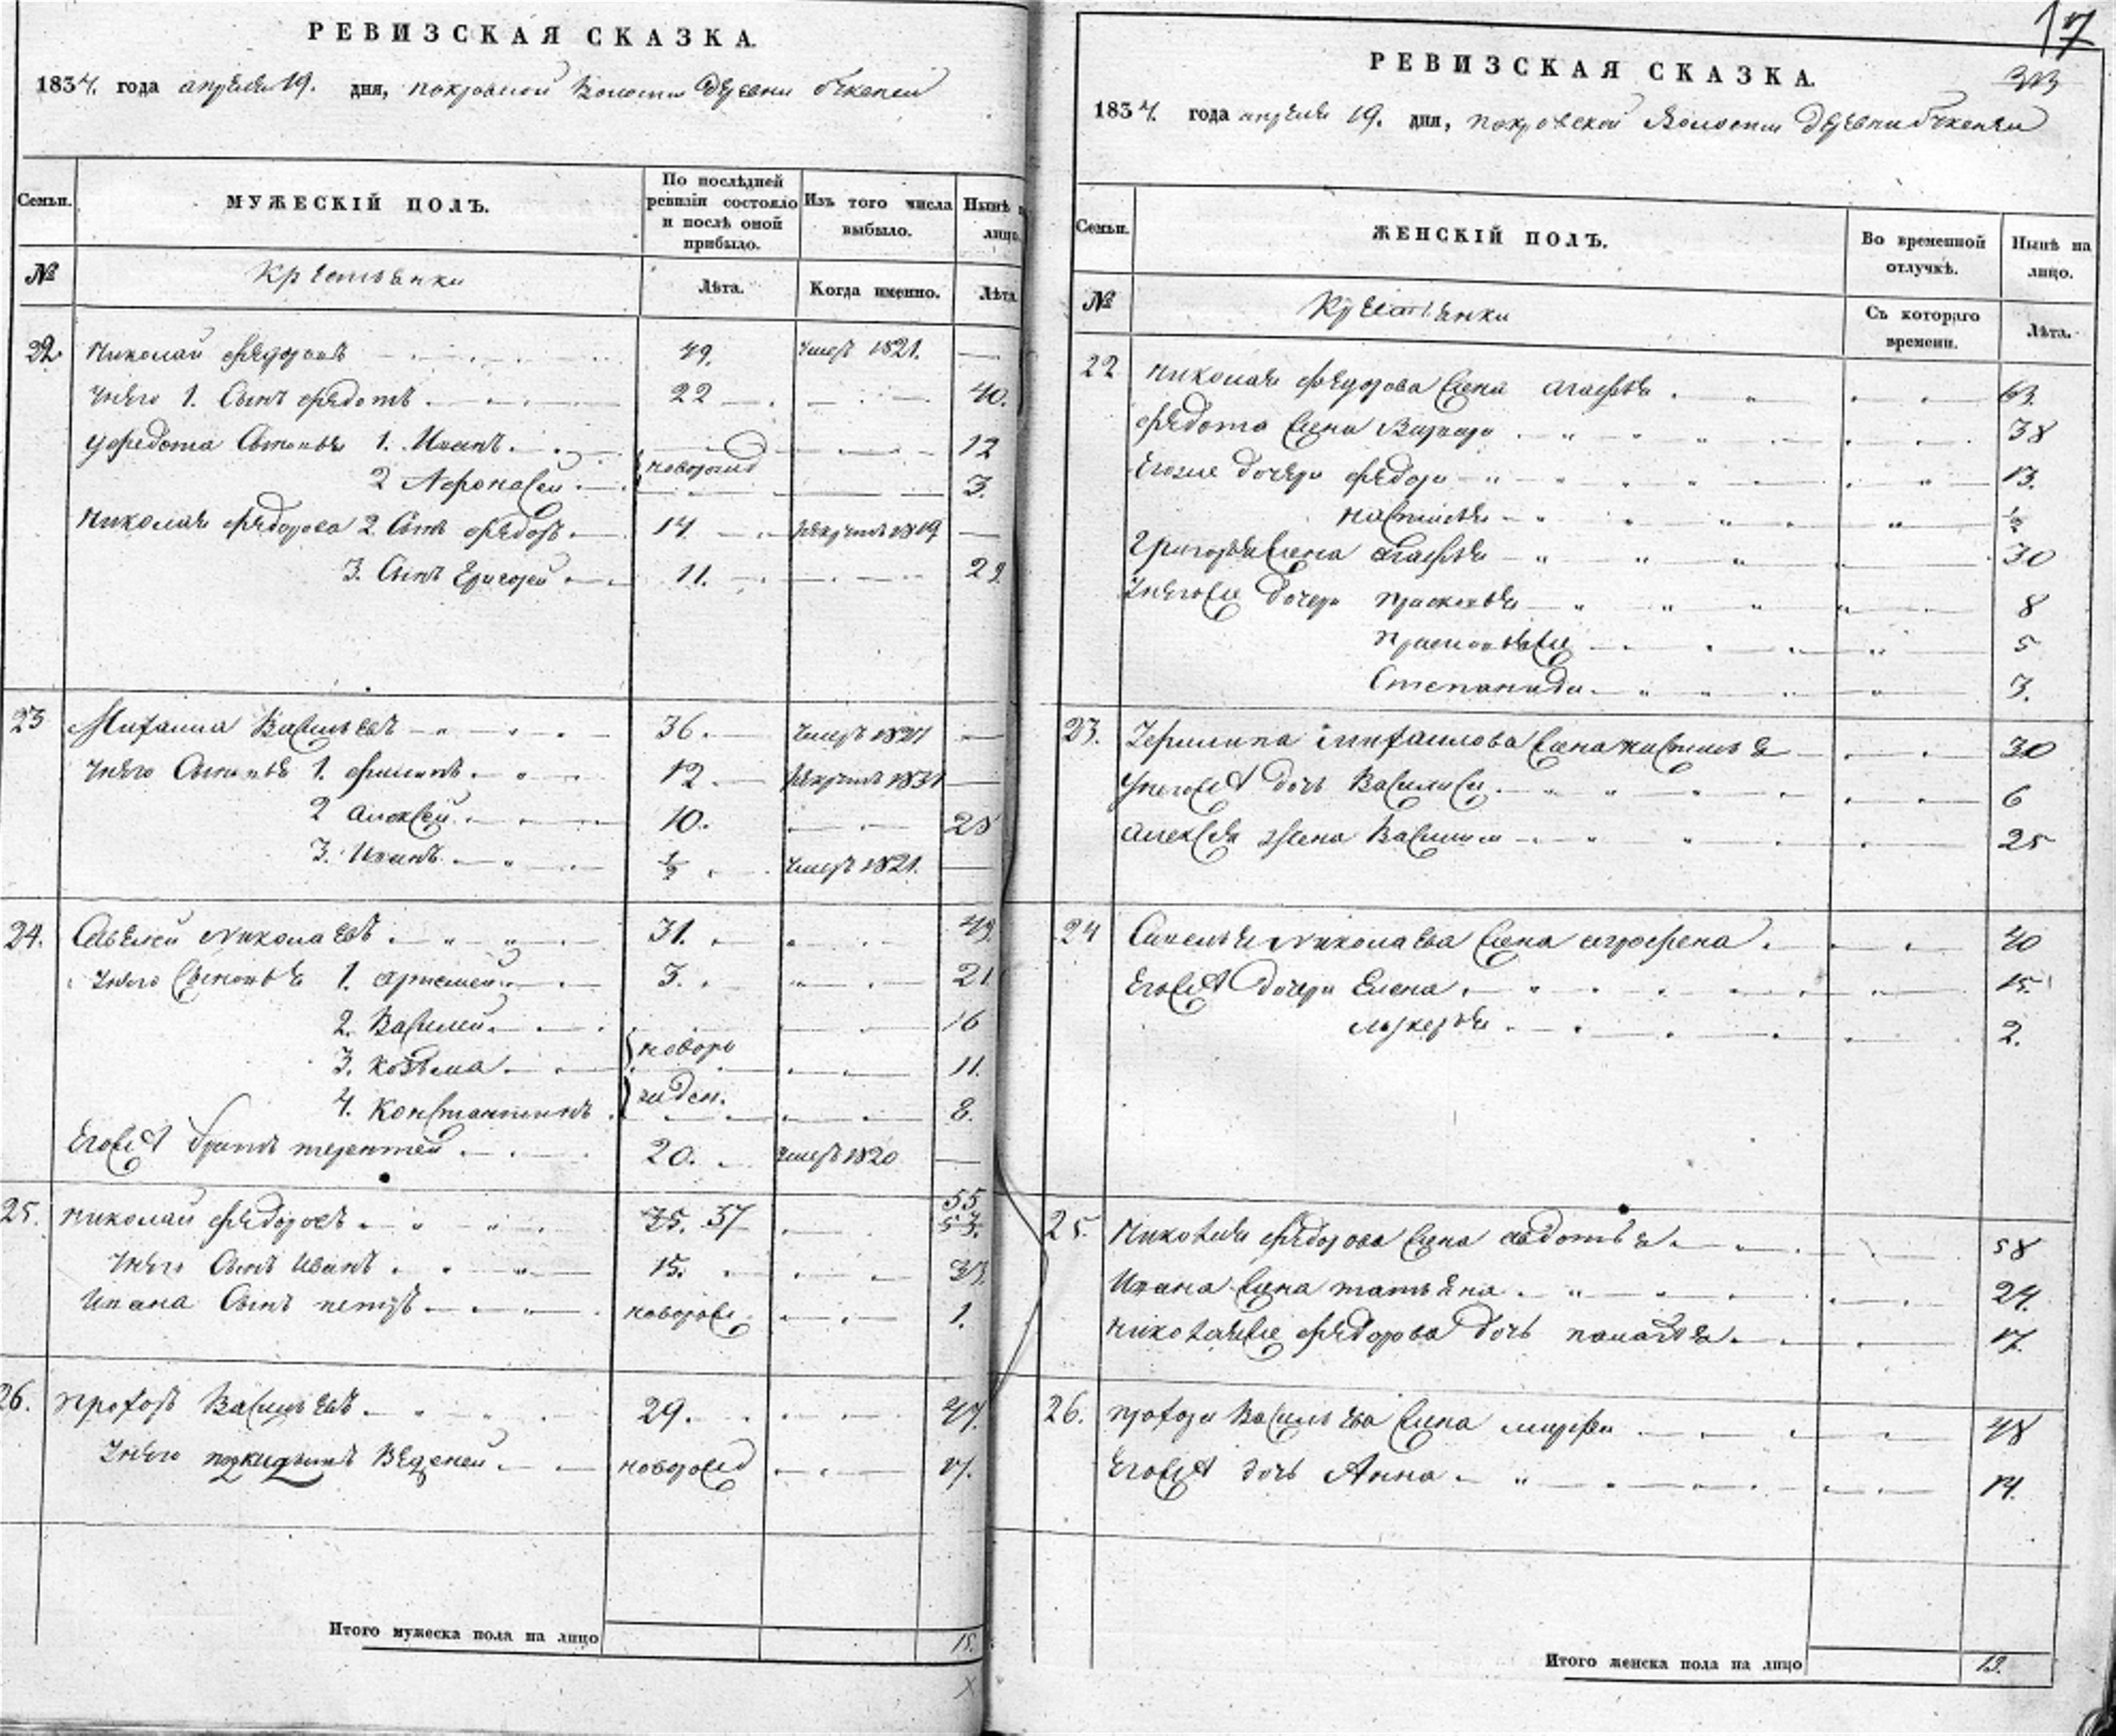 РЕВИЗСКАЯ СКАЗКА.
1834. года апреля 19. дня, покровской волости деревни
Семьи.
МУЖЕСКІЙ ПОЛЪ.
По послѣдней ревизіи состояло и послѣ оной прибыло.
Изъ того числа выбыло.
Нынѣ лицо.
№
Крестьянки
Лѣта.
Когда именно.
Лѣта
22. Николай Федоровъ 49. умеръ 1821. —
Унего 1. Сынъ Федотъ 22 40.
Уфедота Сыновья 1. Иванъ новорожд 12
2 Афонасей 3.
Николая Федорова 2 Сынъ Федоръ 14. рекрутъ 1819 —
3. Сынъ Григорей 11. 29.
23 Михаила Васильевъ 36. умеръ 1827 —
Унего Сыновья 1. Филипъ 12 рекрутъ 1831 —
2 Алексей 10. 25
3. Иванъ ½ умеръ 1821. —
24. Савелей Николаевъ 31. 49.
Унего Сыновья 1. Артемей 3. 21
2. Василей 16
3. Козьма новоро 11.
4. Константинъ жден. 8.
Егоже братъ терентей 20. умеръ 1820 —
25. Николай Федоровъ 35. 37 55 53.
Унего Сынъ Иванъ 15. 33.
Ивана Сынъ петръ новорож 1.
26. Прохоръ Васильевъ 29. 47.
Унего подкидышъ Веденей новорожд 17.
Итого мужеска пола на лицо 15.
X
17
313
РЕВИЗСКАЯ СКАЗКА.
1834. года апреля 19. дня, покровской Волости деревни
Семьи.
ЖЕНСКІЙ ПОЛЪ.
Во временной отлучкѣ.
Нынѣ на лицо.
№
Крестьянки
Съ котораго времени.
Лѣта.
22 Николая Федорова жена агафья 63.
Федота жена Варвара 38
Егоже дочери Федора 13.
настасья ½
Григорья жена агафья 30
Унегоже дочери прасковья 8
прасковьяже 5
Степанида 3.
23. михаилова жена настасья 30
Унегоже дочь Василиса 6
алексея жена Василиса 25
24 Савелья Николаева жена агрофена 40
Егоже дочери Елена 15.
лукерья 2.
25. Николая Федорова жена авдотья 58
Ивана жена татьяна 24.
Николаяже Федорова дочь палагея 17.
26. прохора Васильева жена марфа 48
Егоже дочь Анна 14.
Итого женска пола на лицо 19.